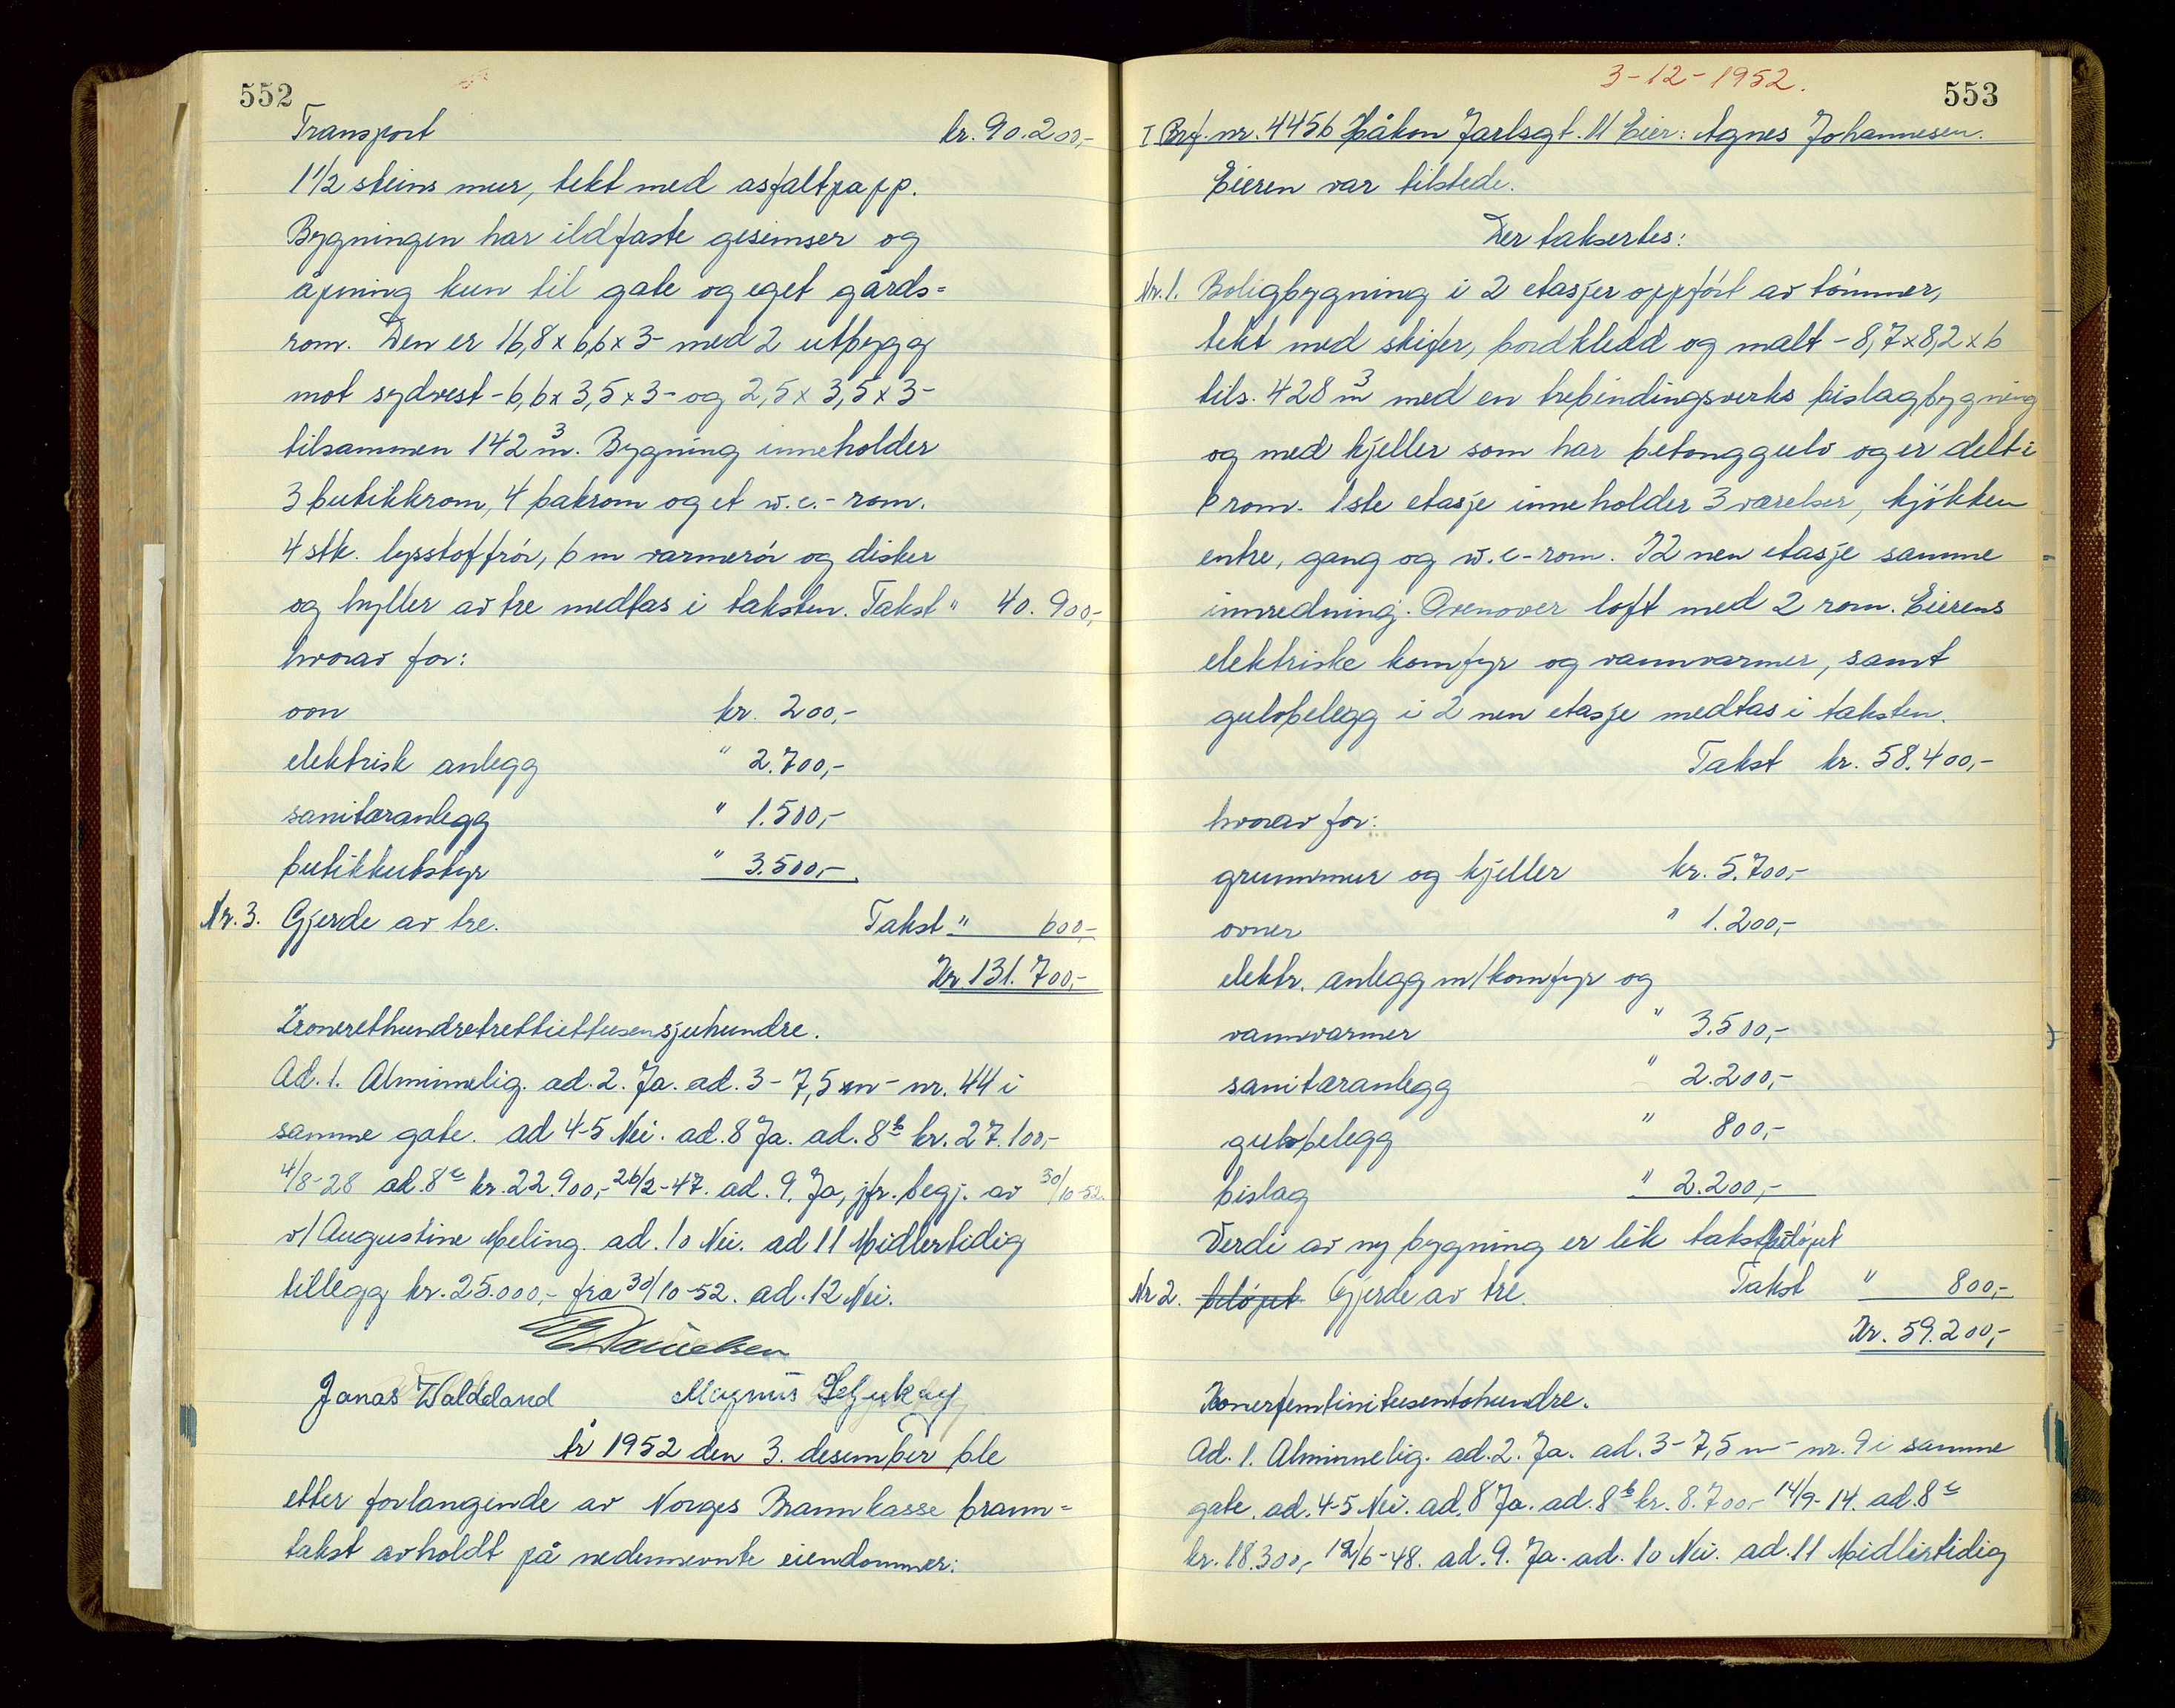 552
Transport kr. 90.200,-
1 1/2 steins mur, tekt med asfaltpapp.
Bygningen har ildfaste gesimser og
åpning kun til gate og eget gårds=
rom. Den er 16,8 x 6,6 x 3 - med 2 utbygg
mot sydvest - 6,6 x 3,5 x 3 - og 2,5 x 3,5 x 3 -
tilsammen 142 m³. Bygning inneholder
3 butikkrom, 4 bakrom og et w.c.- rom.
4 stk. lysstoffrör, 6 m varmerör og disker
og hyller av tre medtas i taksten. Takst " 40.900,-
hvorav for:
ovn kr. 200,-
elektrisk anlegg " 2.700,-
sanitæranlegg " 1.500,-
butikkutstyr " 3.500,-
Nr. 3. Gjerde av tre. Takst " 600,-
Kr. 131.700,-
Kronerethundretrettiettusensjuhundre.
Ad. 1. Alminnelig. ad. 2. Ja. ad. 3 - 7,5 m - nr. 44 i
samme gate. ad 4-5 Nei. ad. 8 Ja. ad. 8b kr. 27.100,-
4/8-28 ad. 8c kr. 22.900,- 26/2-47. ad. 9. Ja, jfr. begj. av 30/10-52.
v/ Augustine Meling. ad. 10 Nei. ad 11 Midlertidig
tillegg kr. 25.000,- fra 30/10-52. ad. 12 Nei.
Danielsen
Jonas Waldeland Magnus
År 1952 den 3. desember ble
etter forlangende av Norges Brannkasse brann=
takst avholdt på nedennevnte eiendommer:
3-12-1952.
553
I Brf. nr. 4456 Håkon Jarlsgt. 11 Eier: Agnes Johannesen.
Eieren var tilstede.
Der takserte​s:
Nr. 1. Boligbygning i 2 etasjer oppfört av tömmer,
tekt med skifer, bordkledd og malt - 8,7 x 8,2 x 6
tils. 428 m³ med en trebindingsverks bislagbygning
og med kjeller som har betonggulv og er delt i
6 rom. 1ste etasje inneholder 3 værelser, kjökken
entre, gang og w.c-rom. I 2 nen etasje samme
innredning. Ovenover loft med 2 rom. Eierens
elektriske komfyr og vannvarmer, samt
gulvbelegg i 2 nen etasje medtas i taksten.
Takst kr. 58.400,-
hvorav for:
grunnmur og kjeller kr. 5.700,-
ovner " 1.200,-
elektr. anlegg m/komfyr og
vannvarmer " 3.500,-
sanitæranlegg " 2.200,-
gulvbelegg " 800,-
bislag " 2.200,-
Verdi av ny bygning er lik takstbelöpet
Nr 2. belöpet Gjerde av tre. Takst " 800,-
Kr. 59.200,-
Kronerfemtinitusentohundre.
Ad. 1. Alminnelig. ad. 2. Ja. ad. 3 - 7,5 m - nr. 9 i samme
gate. ad. 4-5 Nei. ad. 8 Ja. ad. 8b kr. 8.700,- 14/9-14. ad. 8c
kr. 18.300,- 12/6-48. ad. 9. Ja. ad. 10 Nei. ad. 11 Midlertidig